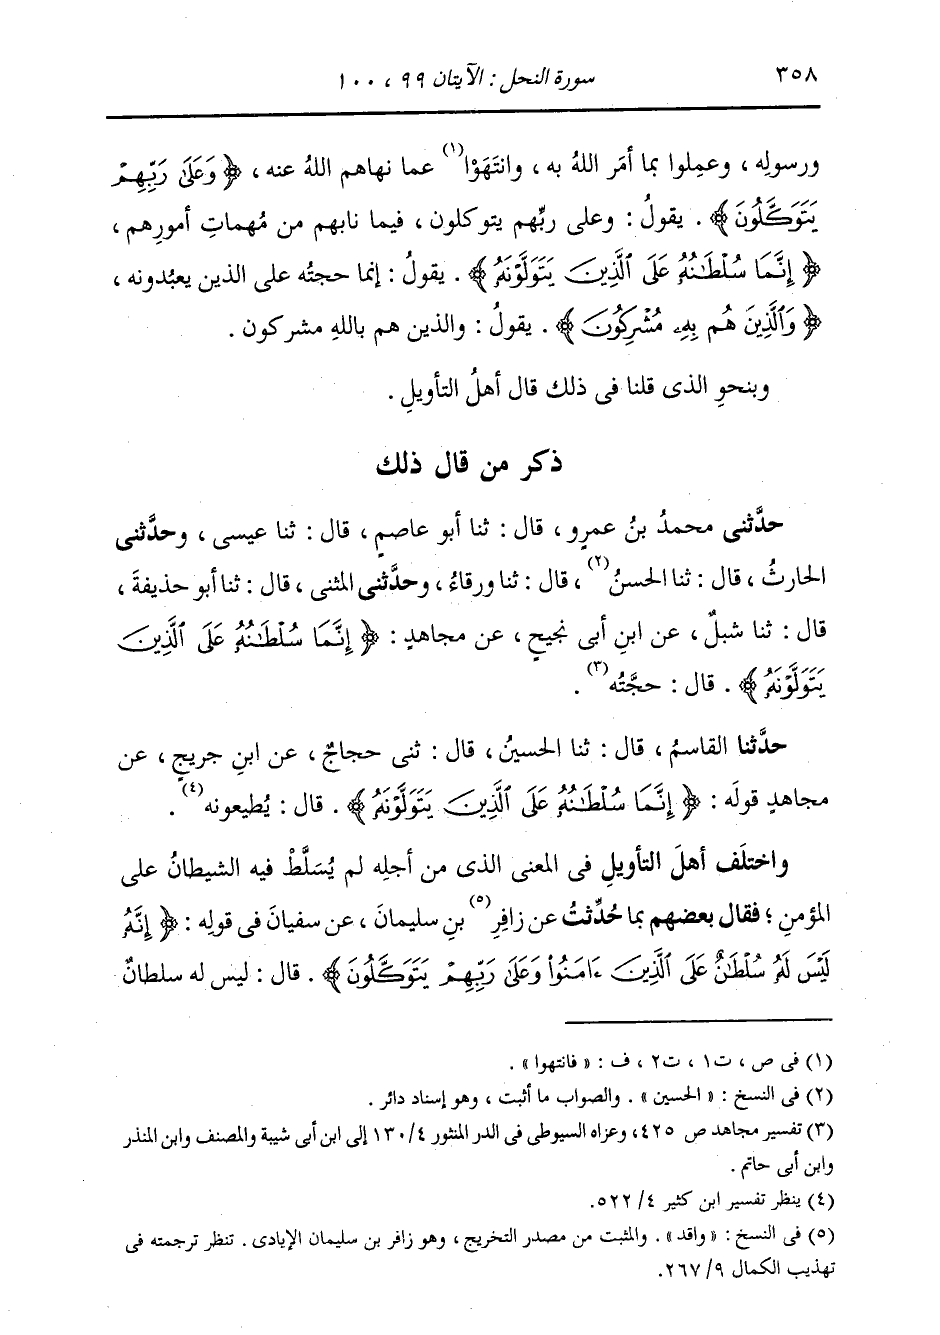 ٣٥٨
سورة النحل : الآيتان ٩٩ ، ١٠٠
ورسولِه ، وعمِلوا بما أمَر اللهُ به ، وانتَهَوْا(١) عما نهاهم اللهُ عنه ، ﴿ وَعَلَىٰ رَبِّهِمْ
يَتَوَكَّلُونَ ﴾ . يقولُ : وعلى ربِّهم يتوكلون ، فيما نابهم من مُهماتِ أمورِهم ،
﴿ إِنَّمَا سُلْطَـٰنُهُۥ عَلَى ٱلَّذِينَ يَتَوَلَّوْنَهُۥ ﴾ . يقولُ : إنما حجتُه على الذين يعبُدونه ،
﴿ وَٱلَّذِينَ هُم بِهِۦ مُشْرِكُونَ ﴾ . يقولُ : والذين هم باللهِ مشركون .
وبنحوِ الذى قلنا فى ذلك قال أهلُ التأويلِ .
ذكر من قال ذلك
حدَّثنى محمدُ بنُ عمرٍو ، قال : ثنا أبو عاصمٍ ، قال : ثنا عيسى ، وحدَّثنى
الحارثُ ، قال : ثنا الحسنُ(٢) ، قال : ثنا ورقاءُ ، وحدَّثنى المثنى ، قال : ثنا أبو حذيفةَ ،
قال : ثنا شبلٌ ، عن ابنِ أبى نجيحٍ ، عن مجاهدٍ : ﴿ إِنَّمَا سُلْطَـٰنُهُۥ عَلَى ٱلَّذِينَ
يَتَوَلَّوْنَهُۥ ﴾ . قال : حجَّتُه(٣) .
حدَّثنا القاسمُ ، قال : ثنا الحسينُ ، قال : ثنى حجاجٌ ، عن ابنِ جريجٍ ، عن
مجاهدٍ قولَه : ﴿ إِنَّمَا سُلْطَـٰنُهُۥ عَلَى ٱلَّذِينَ يَتَوَلَّوْنَهُۥ ﴾ . قال : يُطيعونه(٤) .
واختلَف أهلَ التأويلِ فى المعنى الذى من أجلِه لم يُسَلَّطْ فيه الشيطانُ على
المؤمنِ ؛ فقال بعضهم بما حُدِّثتُ عن زافرِ(٥) بنِ سليمانَ ، عن سفيانَ فى قولِه : ﴿ إِنَّهُۥ
لَيْسَ لَهُۥ سُلْطَـٰنٌ عَلَى ٱلَّذِينَ ءَامَنُوا۟ وَعَلَىٰ رَبِّهِمْ يَتَوَكَّلُونَ ﴾ . قال : ليس له سلطانٌ
(١) فى ص ، ت١ ، ت٢ ، ف : « فانتهوا » .
(٢) فى النسخ : « الحسين » . والصواب ما أثبت ، وهو إسناد دائر .
(٣) تفسير مجاهد ص ٤٢٥، وعزاه السيوطى فى الدر المنثور ٤/ ١٣٠ إلى ابن أبى شيبة والمصنف وابن المنذر
وابن أبى حاتم .
(٤) ينظر تفسير ابن كثير ٤/ ٥٢٢.
(٥) فى النسخ : « واقد » . والمثبت من مصدر التخريج ، وهو زافر بن سليمان الإيادى . تنظر ترجمته فى
تهذيب الكمال ٩/ ٢٦٧.